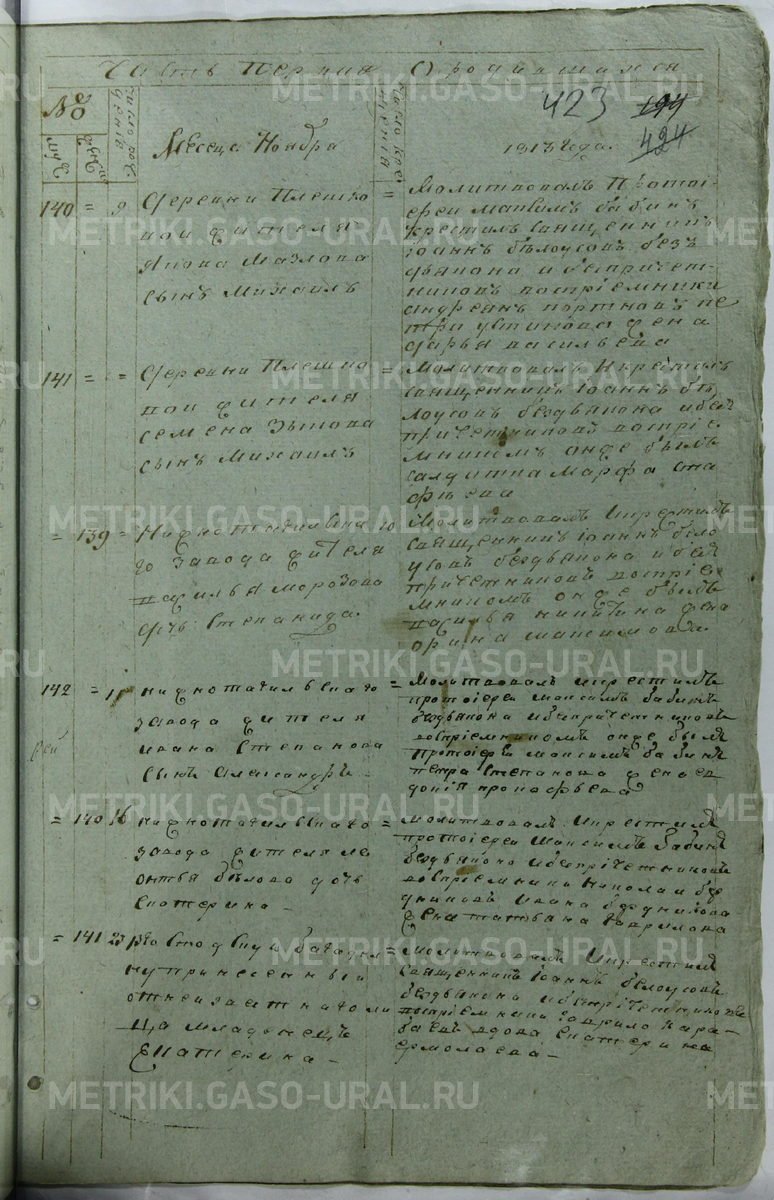 Часть первая О родившихся
№
423
194
424
Месяца Ноября
1813 года
140 = 9 деревни Плешко
вой жителя
Якова Мазлова
сынъ Михаилъ
= Молитвовалъ Протоі
ерей Максимъ бабинъ
крестилъ священникъ
іоаннъ бѣлоусовъ безъ
дьякона и безпричет
никовъ воспріемники
андреянъ портновъ пе
тра устинова жена
дарья васильева
141 = = деревни Плешко
вой жителя
семена Зыкова
сынъ Михаилъ
= Молитвовалъ Икрестилъ
священникъ Іоаннъ бѣ
лоусовъ бездьякона ибез
причетниковъ воспріе
мникомъ онде былъ
салдатка Марфа она
фрѣева
= 139 = Нижнотагильска го
завода жителя
василья морозова
дочь Степанида
Молитвовалъ Икрестилъ
священникъ іоаннъ бѣло
усовъ бездьякона ибез
причетниковъ воспріе
мникомъ онде былъ
василья никитина жена
орина максимова
142 = 11 нижнотагильска го
завода жителя
ивана Степанова
сынъ Александръ
= Молитвовалъ икрестилъ
протоіерей Максимъ бабинъ
бездьякона ибезпричетниковъ
воспріемникомъ онде былъ
Протоіерей максимъ бабинъ
петра степанова жена ев
докія прокофьева
= 140 16 нижнотагильска го
завода жителя ле
онтья бѣлова дочь
Екатерина
= молитвовалъ икрестилъ
протоіерей Максимъ бабинъ
бездьякона ибезпричетниковъ
воспріемники Никола
Ивана
жена татьяна гаврилова
= 141 23
ну принесенныи
младенецъ
Екатерина
= молитвовалъ Икрестилъ
священникъ іоаннъ бѣлоусовъ
бездьякона ибезпричетниковъ
воспріемники гаврило кара
баевъ вдова екатерина
ермолаева
METRIKI.GASO-URAL.RU